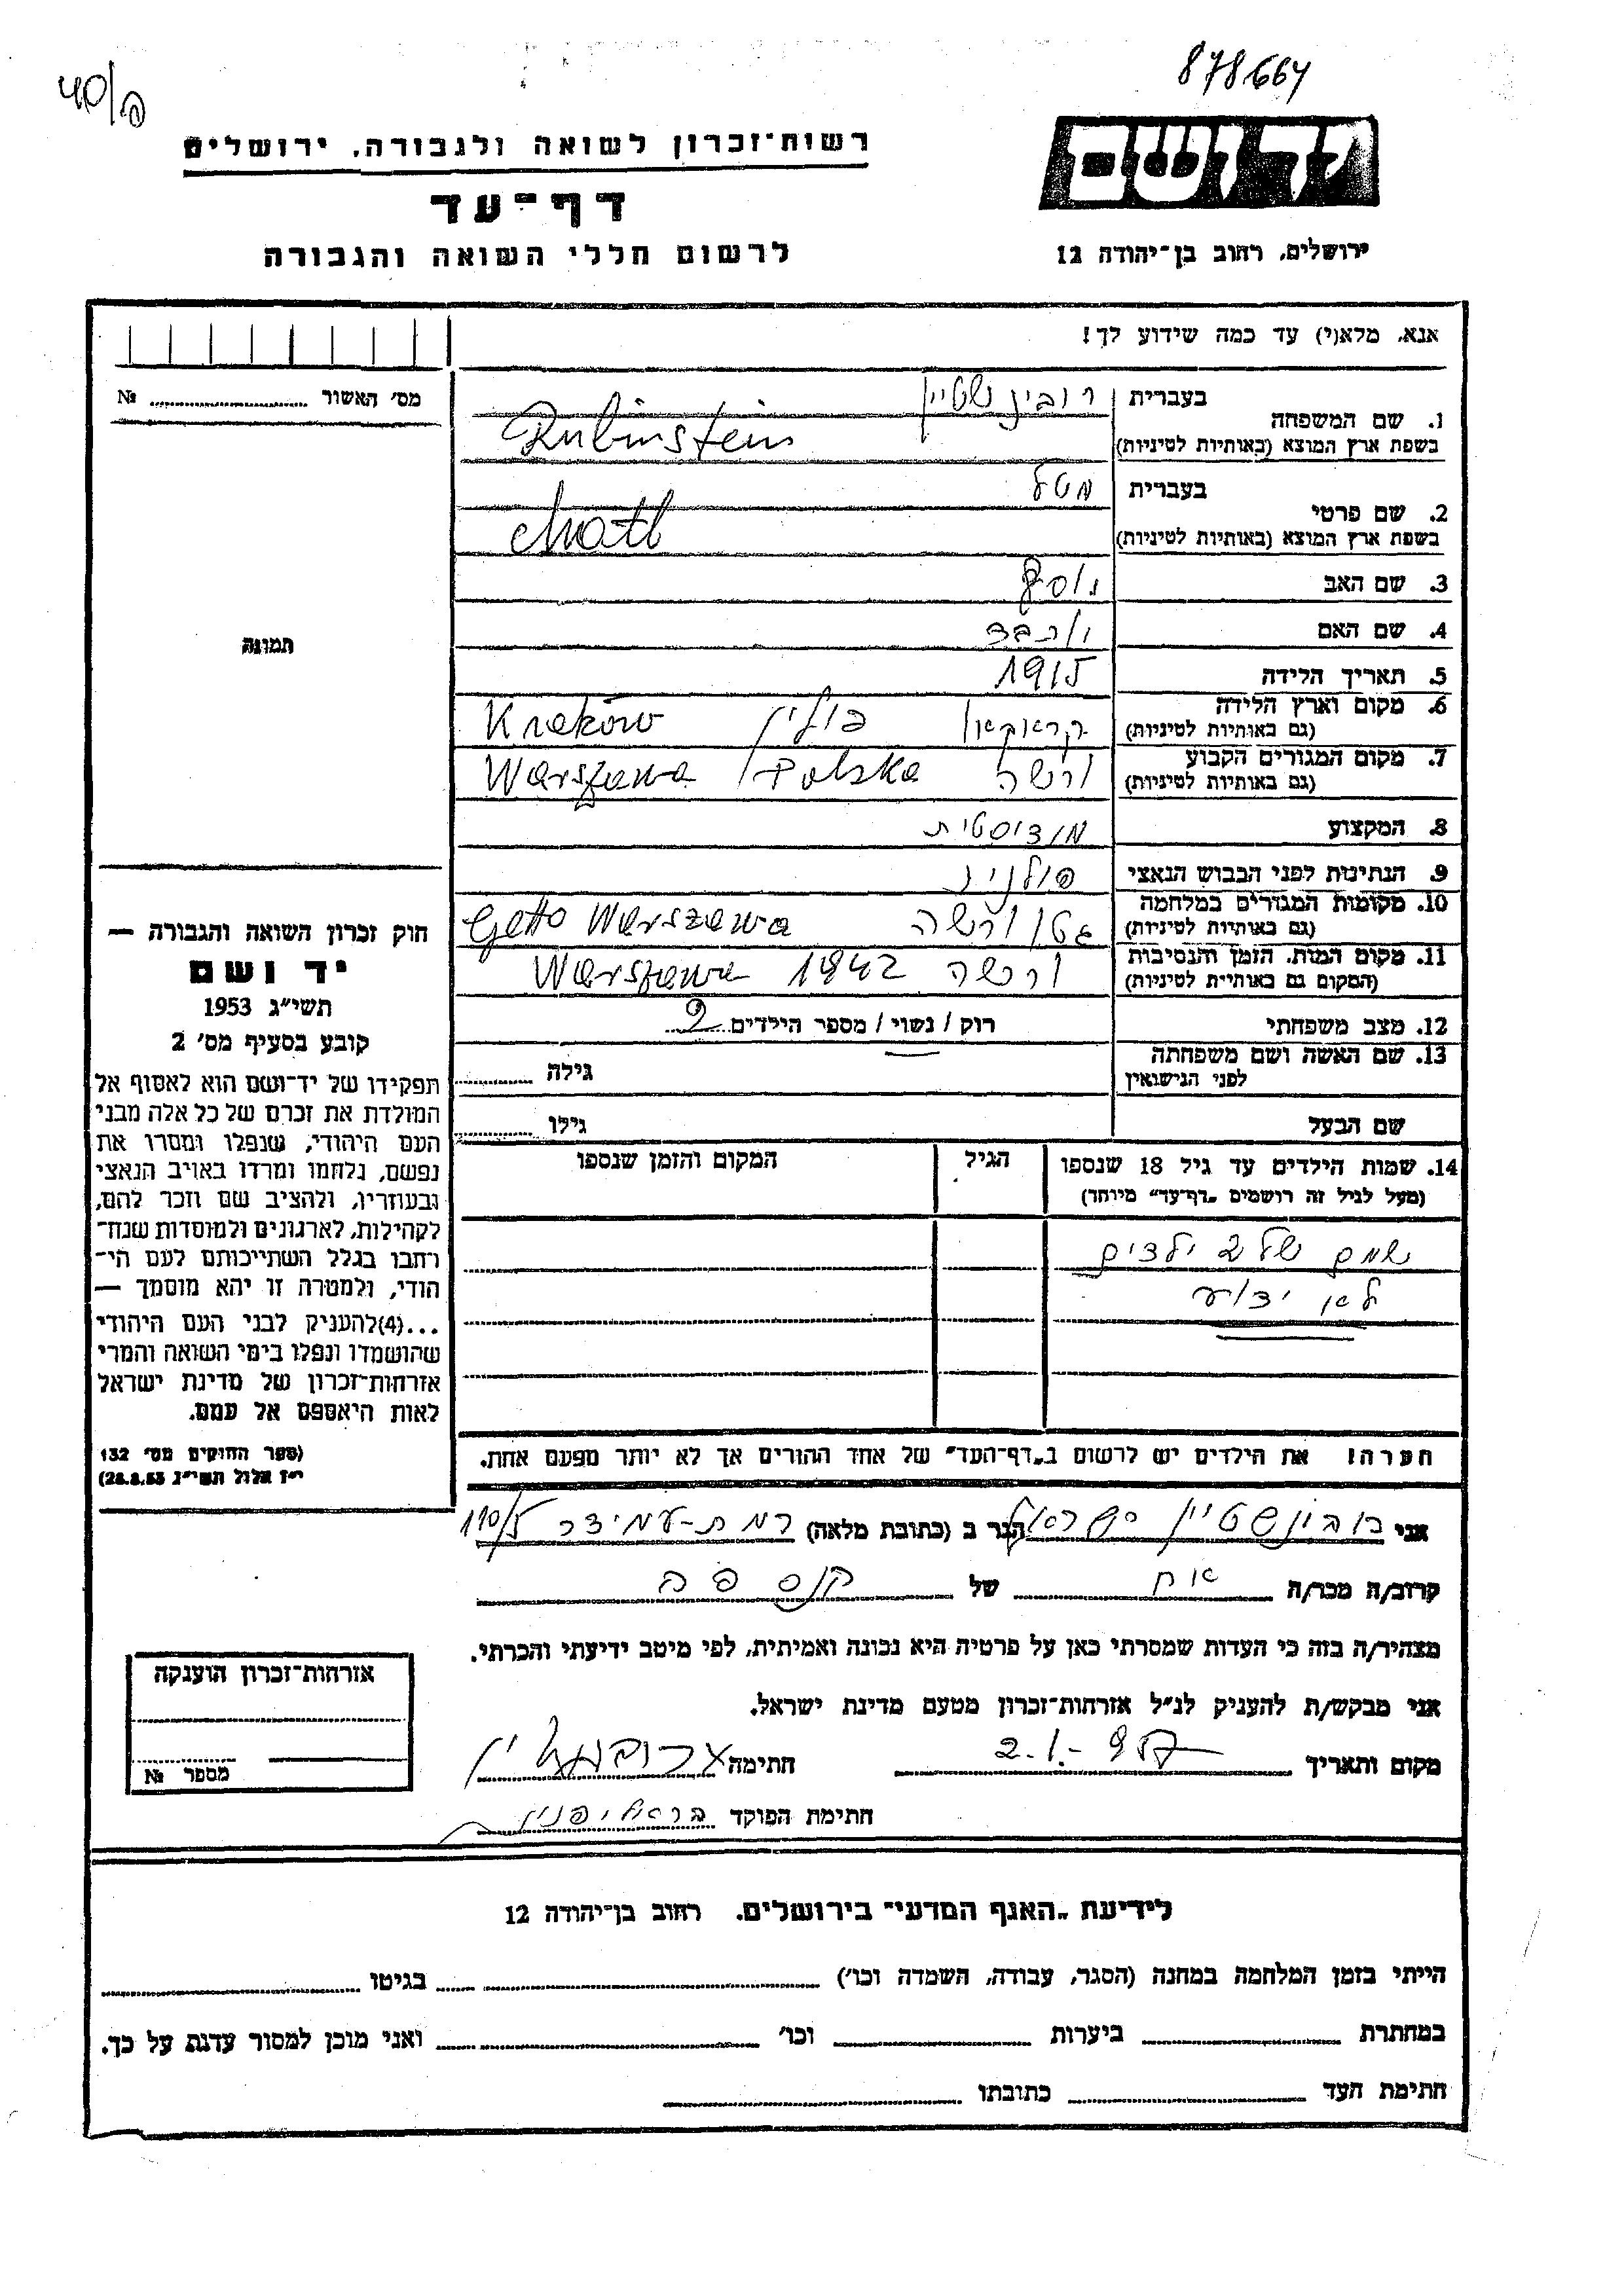 878664
40/פ
יד ושם
רשות־זכרון לשואה ולגבורה, ירושלים
דף־עד
לרשום חללי השואה והגבורה
ירושלים, רחוב בן־יהודה 12
אנא, מלא(י) עד כמה שידוע לך!
מס׳ האשור № 
1. שם המשפחה בעברית רובינשטיין
בשפת ארץ המוצא (באותיות לטיניות) Rubinstein
2. שם פרטי בעברית מטל
בשפת ארץ המוצא (באותיות לטיניות) Matl
3. שם האב יוסף
4. שם האם יוכבד
5. תאריך הלידה 1915
6. מקום וארץ הלידה (גם באותיות לטיניות) קראקאו פולין Kraków
7. מקום המגורים הקבוע (גם באותיות לטיניות) ורשה Warszawa / Polska
8. המקצוע מודיסטית
9. הנתינות לפני הכבוש הנאצי פולנית
10. מקומות המגורים במלחמה (גם באותיות לטיניות) גטו ורשה Getto Warszawa
11. מקום המות, הזמן והנסיבות (המקום גם באותיות לטיניות) ורשה 1942 Warszawa
12. מצב משפחתי רוק / נשוי / מספר הילדים 2
13. שם האשה ושם משפחתה לפני הנישואין גילה
שם הבעל גילו
14. שמות הילדים עד גיל 18 שנספו הגיל המקום והזמן שנספו
(מעל לגיל זה רושמים „דף־עד״ מיוחד)
שמם של 2 ילדים
לא ידוע
הערה! את הילדים יש לרשום ב„דף־העד״ של אחד ההורים אך לא יותר מפעם אחת.
תמונה
חוק זכרון השואה והגבורה —
יד ושם
תשי״ג 1953
קובע בסעיף מס׳ 2
תפקידו של יד־ושם הוא לאסוף אל
המולדת את זכרם של כל אלה מבני
העם היהודי, שנפלו ומסרו את
נפשם, נלחמו ומרדו באויב הנאצי
ובעוזריו, ולהציב שם וזכר להם,
לקהילות, לארגונים ולמוסדות שנח־
רחבו בגלל השתייכותם לעם הי־
הודי, ולמטרה זו יהא מוסמך —
...(4)להעניק לבני העם היהודי
שהושמדו ונפלו בימי השואה והמרי
אזרחות־זכרון של מדינת ישראל
לאות היאספם אל עמם.
(ספר החוקים מס׳ 132
י״ז אלול תשי״ג 28.8.53)
אני רובינשטיין הגר ב (כתובת מלאה) רמת-עמידר 110/5
קרוב/ה מכר/ה אח של
מצהיר/ה בזה כי העדות שמסרתי כאן על פרטיה היא נכונה ואמיתית, לפי מיטב ידיעתי והכרתי.
אני מבקש/ת להעניק לנ״ל אזרחות־זכרון מטעם מדינת ישראל.
מקום ותאריך 2.1.-957 חתימה
חתימת הפוקד
אזרחות־זכרון הוענקה
מספר №
לידיעת „האגף המדעי״ בירושלים. רחוב בן־יהודה 12
הייתי בזמן המלחמה במחנה (הסגר, עבודה, השמדה וכו׳) בגיטו
במחתרת ביערות וכו׳ ואני מוכן למסור עדות על כך.
חתימת העד כתובתו